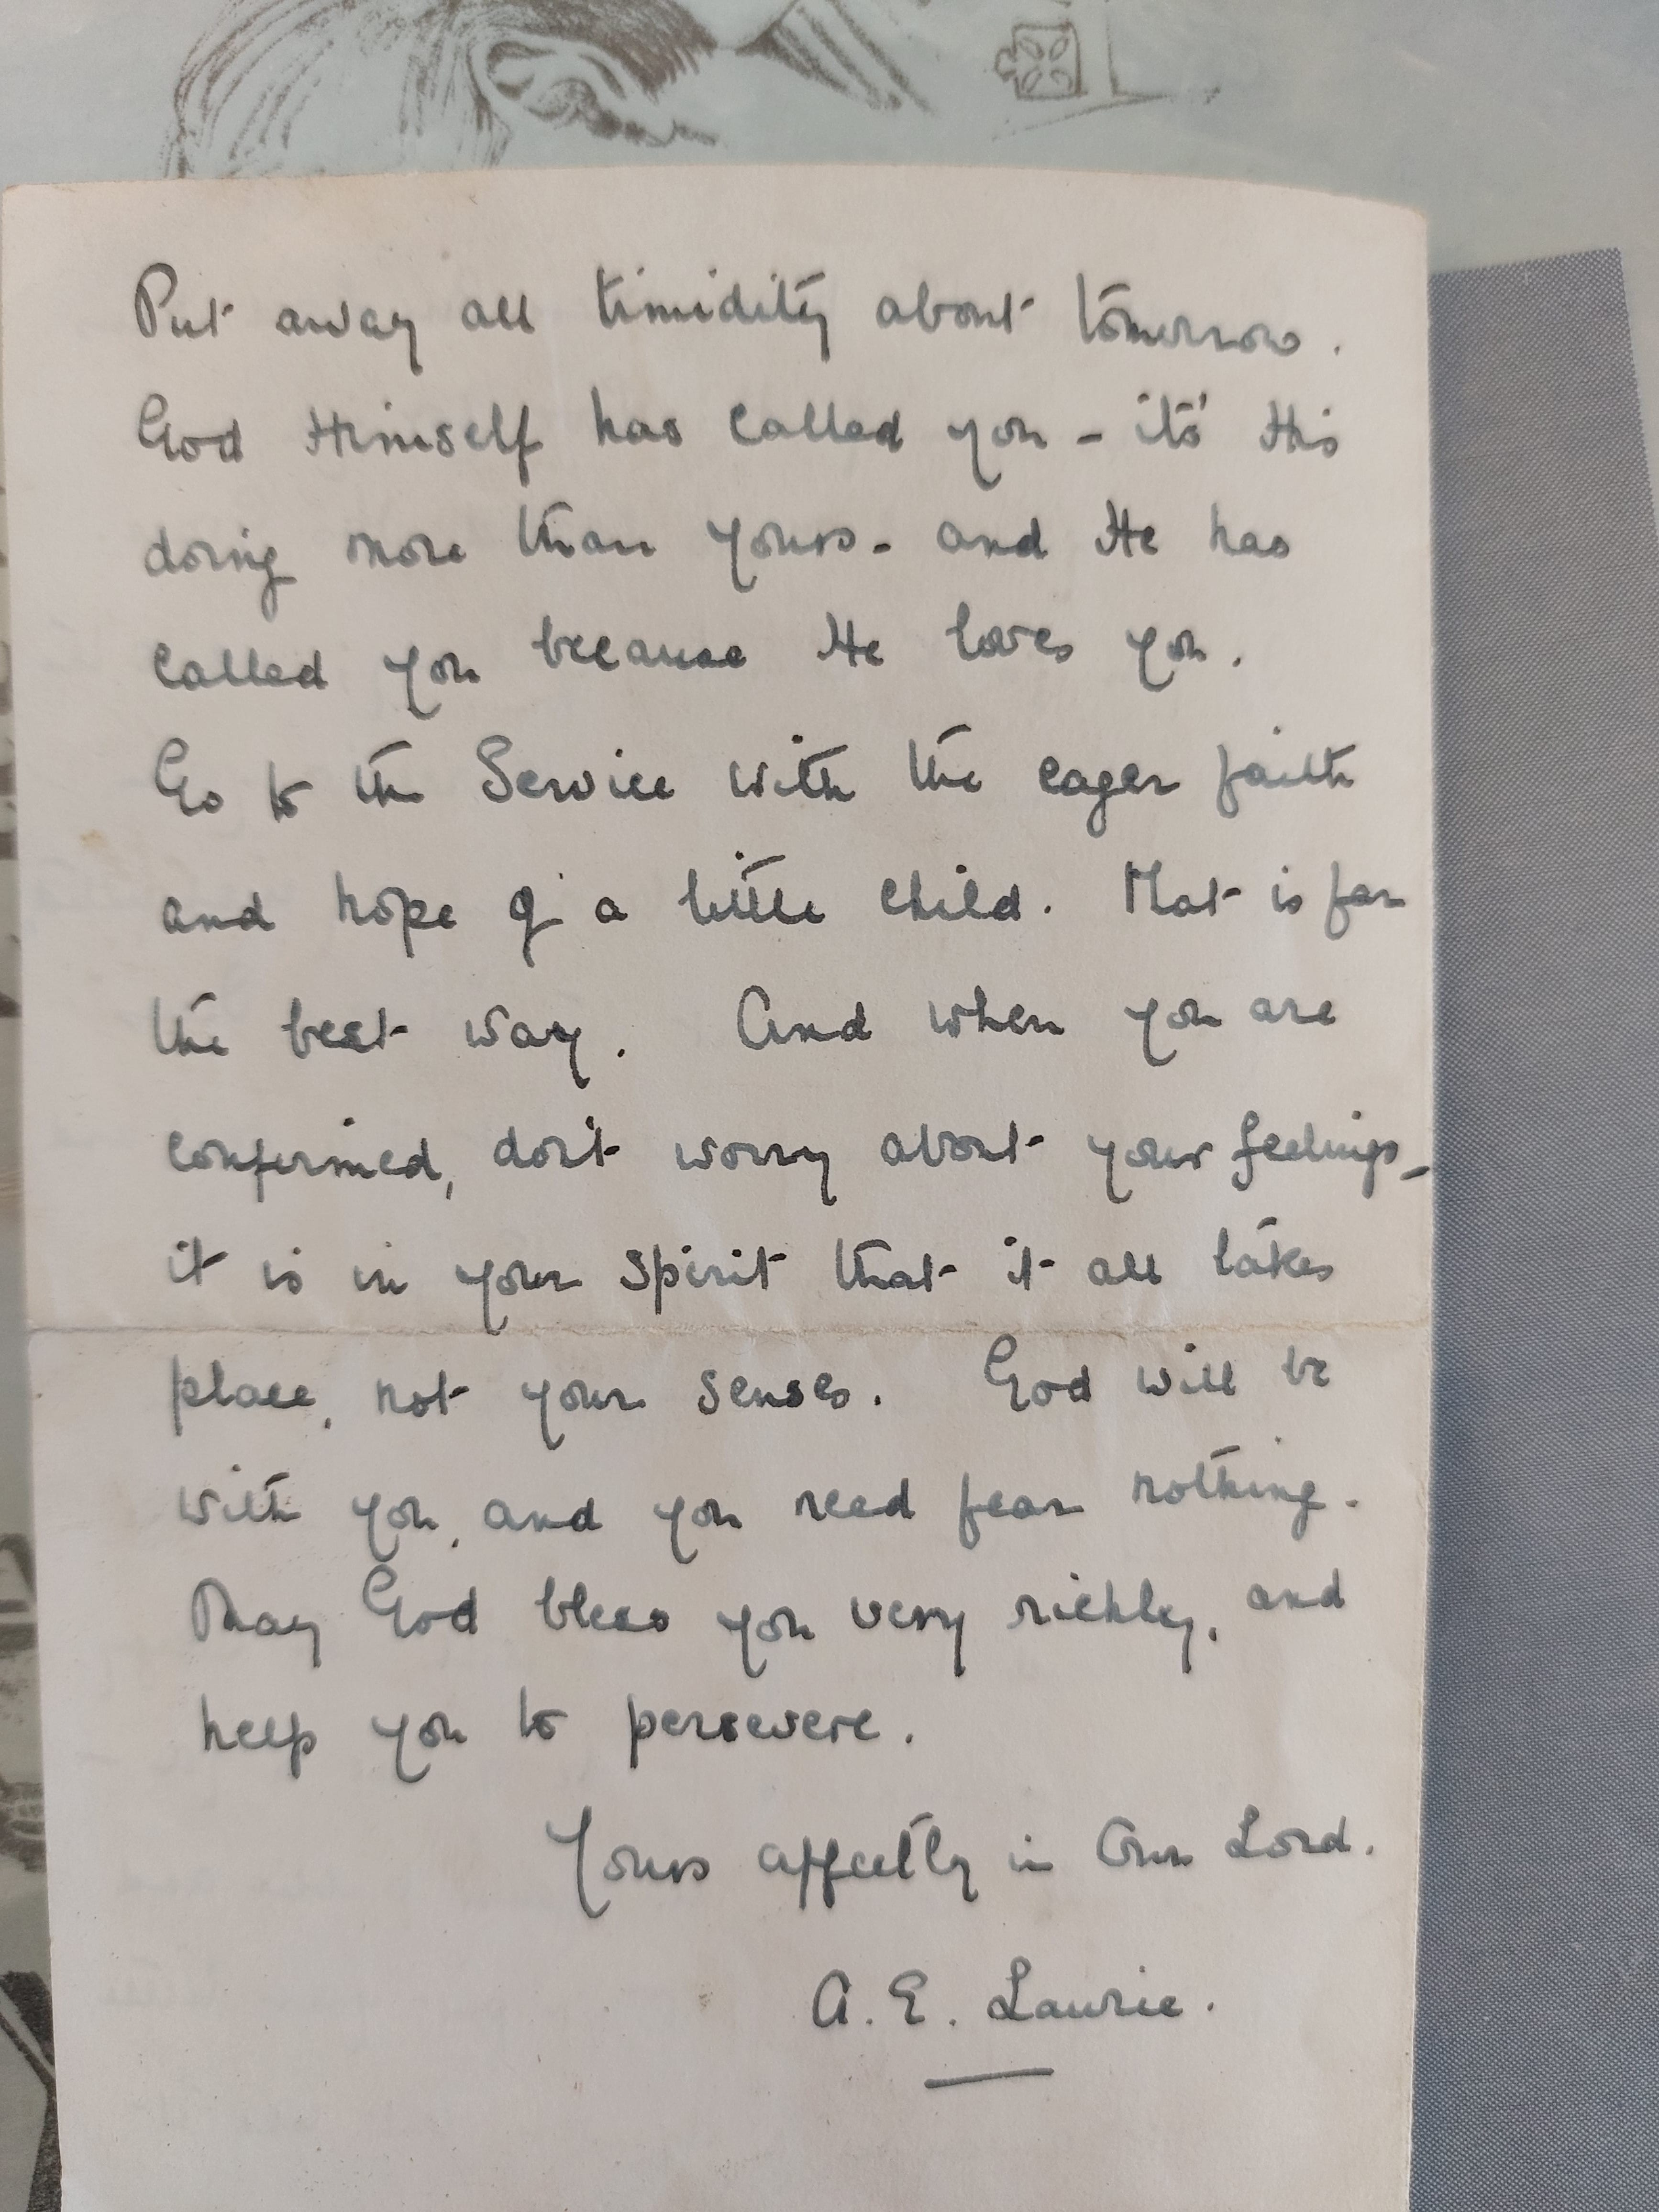 Put away all timidity about tomorrow.
God Himself has called you - its' His
doing more than yours - and He has
called you because He loves you.
Go to the Service with the eager faith
and hope of a little child. That is far
the best way. And when you are
confirmed, don't worry about your feelings -
it is in your spirit that it all takes
place, not your senses. God will be
with you, and you need fear nothing.
May God bless you very richly, and
help you to persevere.
Yours affectly in Our Lord.
A. E. Laurie.